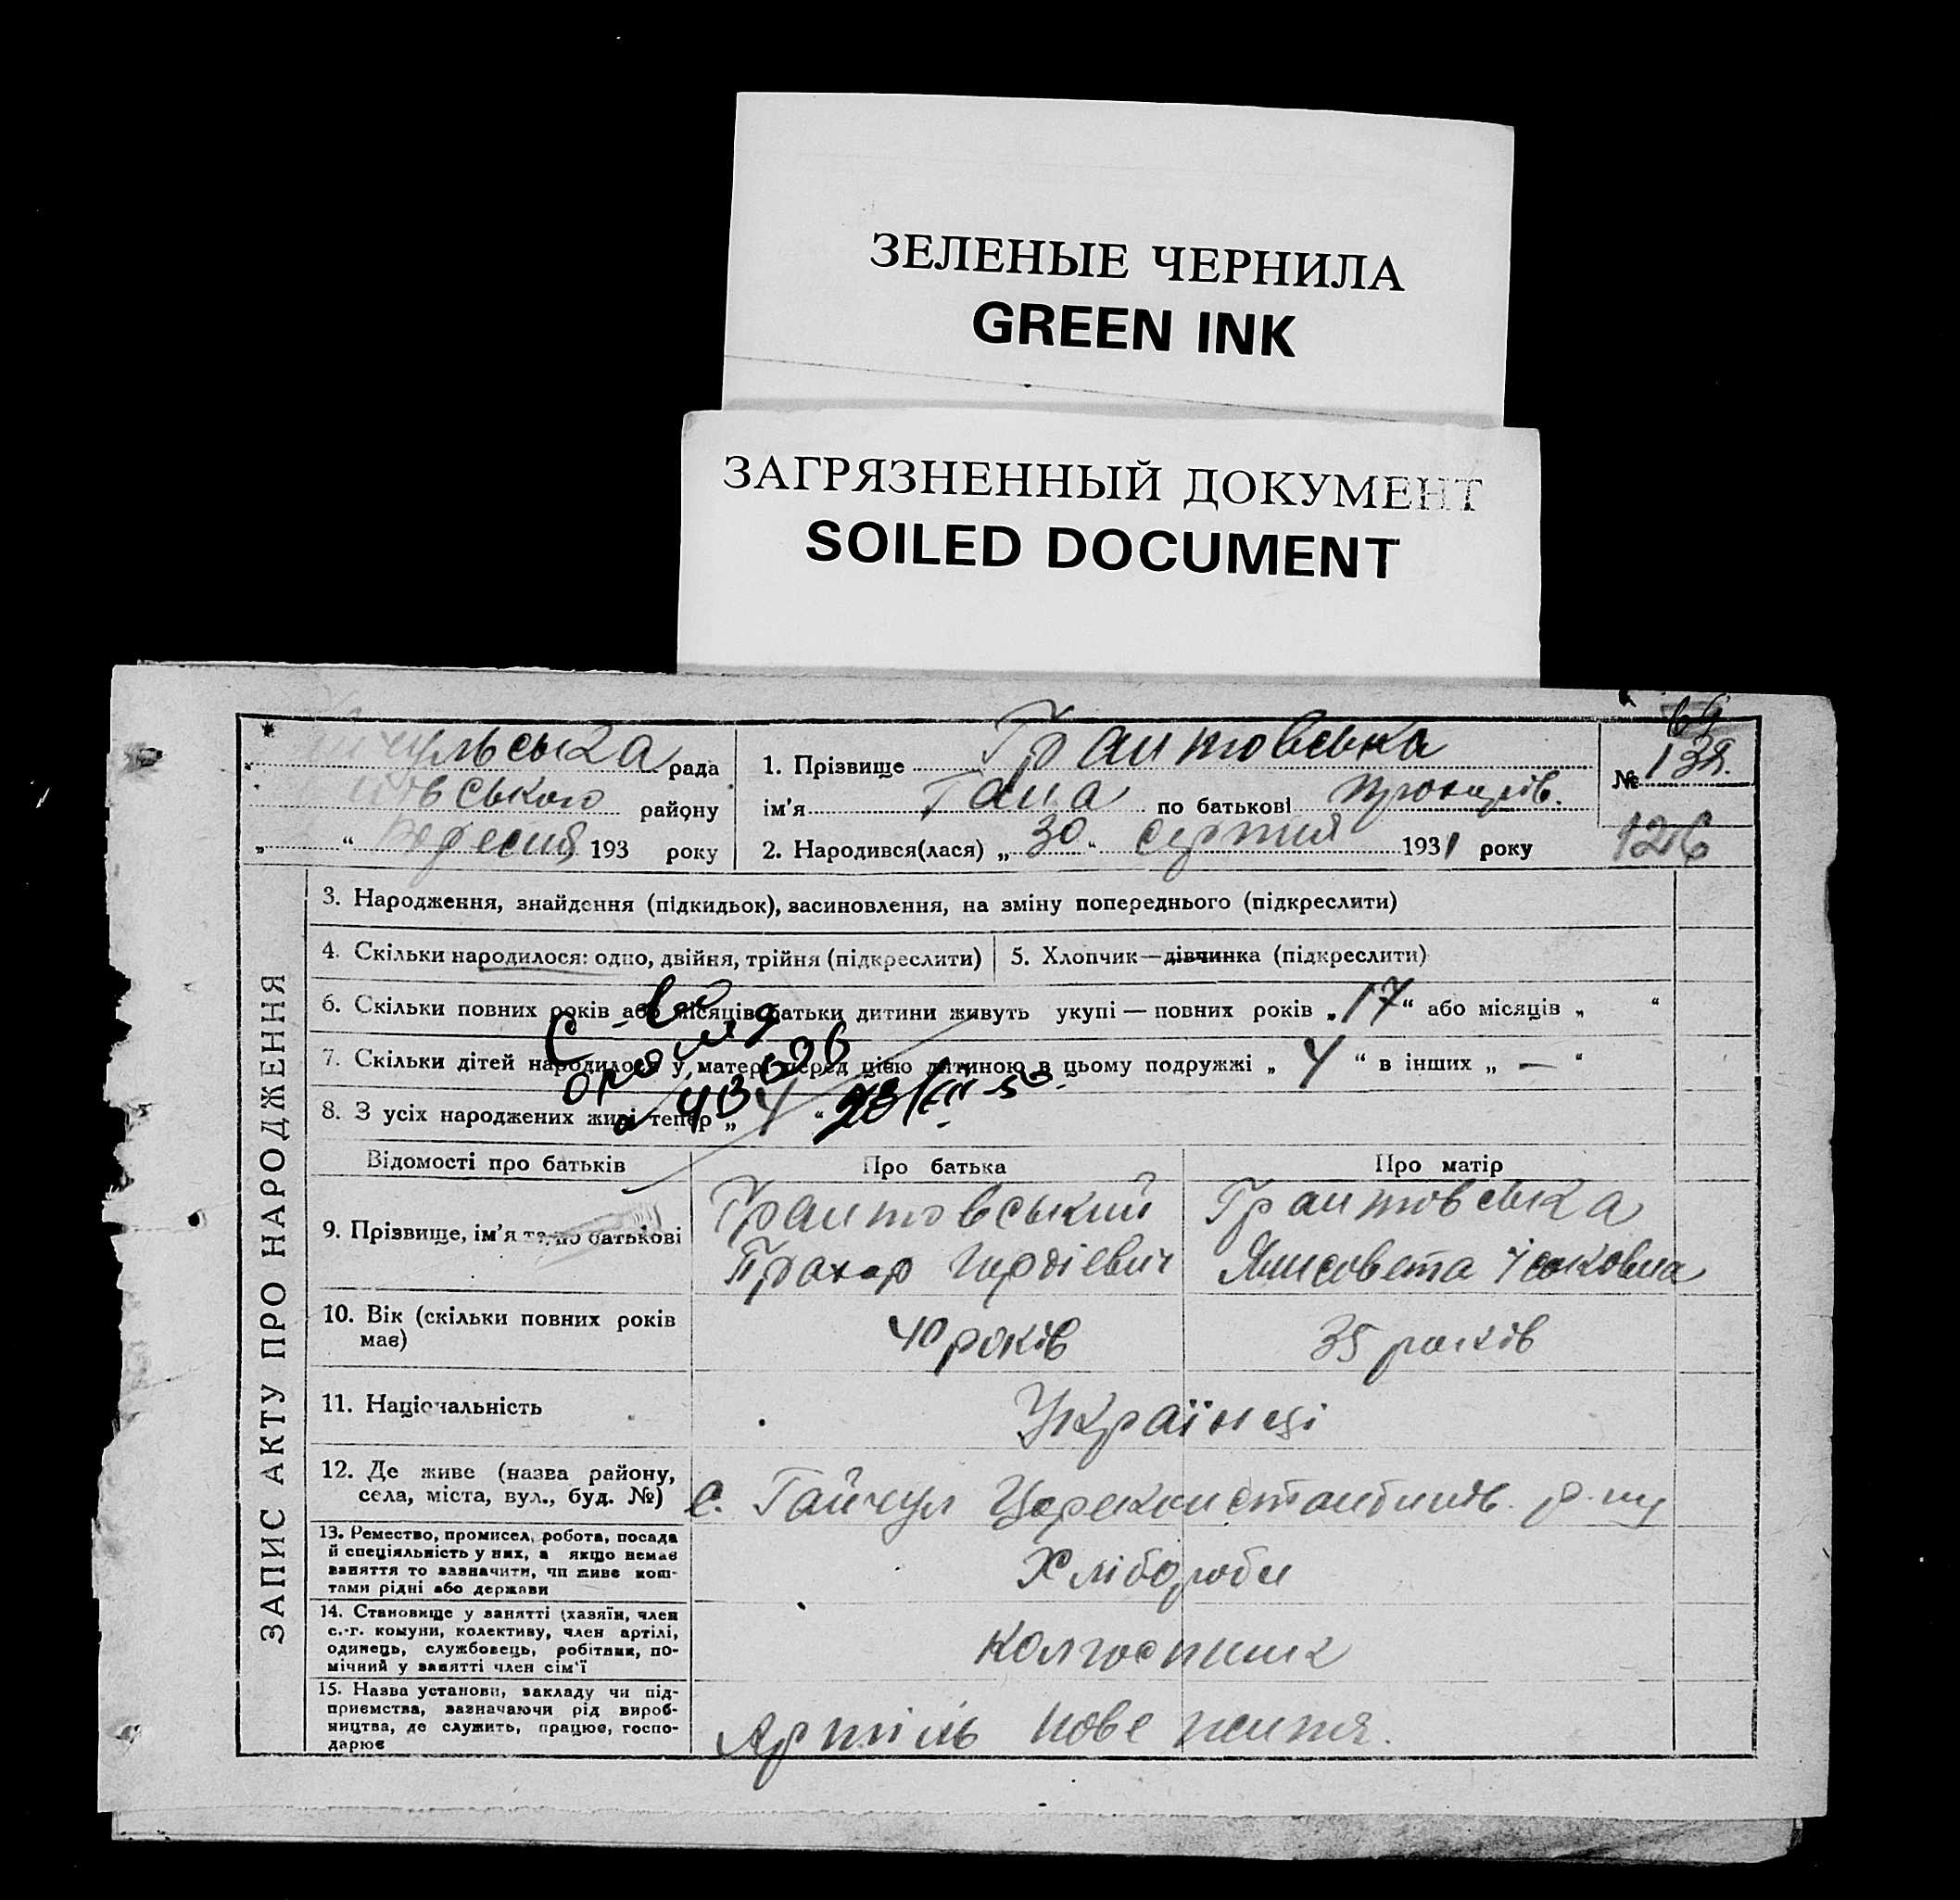 ЗЕЛЕНЫЕ ЧЕРНИЛА
GREEN INK
ЗАГРЯЗНЕННЫЙ ДОКУМЕНТ
SOILED DOCUMENT
69
чульська рада
вського району
„ “ Вересня 193 року
1. Прізвище Грантовська
ім'я Гана по батькові
2. Народився(лася) „ 30 “ серпня 1931 року
№ 138.
126
ЗАПИС АКТУ ПРО НАРОДЖЕННЯ
3. Народження, знайдення (підкидьок), засиновлення, на зміну попереднього (підкреслити)
4. Скільки народилося: одно, двійня, трійня (підкреслити)
5. Хлопчик—дівчинка (підкреслити)
6. Скільки повних років або місяців батьки дитини живуть укупі — повних років „ 17 “ або місяців „ “
7. Скільки дітей народилося у матері перед цією дитиною в цьому подружжі „ 4 “ в інших „ — “
8. З усіх народжених живі тепер „ 4 “
Відомості про батьків
Про батька
Про матір
9. Прізвище, ім'я та по батькові
Грантовський
Прохор Гордієвич
Грантовська
Ялисовета
10. Вік (скільки повних років
має)
40 років
35 років
11. Національність
Українці
12. Де живе (назва району,
села, міста, вул., буд. №)
с. Гайчул Царекконстантинів. р-ну
13. Ремество, промисел, робота, посада
й спеціяльність у них, а якщо немає
заняття то зазначити, чи живе кош-
тами рідні або держави
Хлібороби
14. Становище у занятті (хазяїн, член
с.-г. комуни, колективу, член артілі,
одинець, службовець, робітник, по-
мічний у занятті член сім'ї
колгоспник
15. Назва установи, закладу чи під-
приємства, зазначаючи рід вироб-
ництва, де служить, працює, госпо-
дарює
Артіль Нове життя.